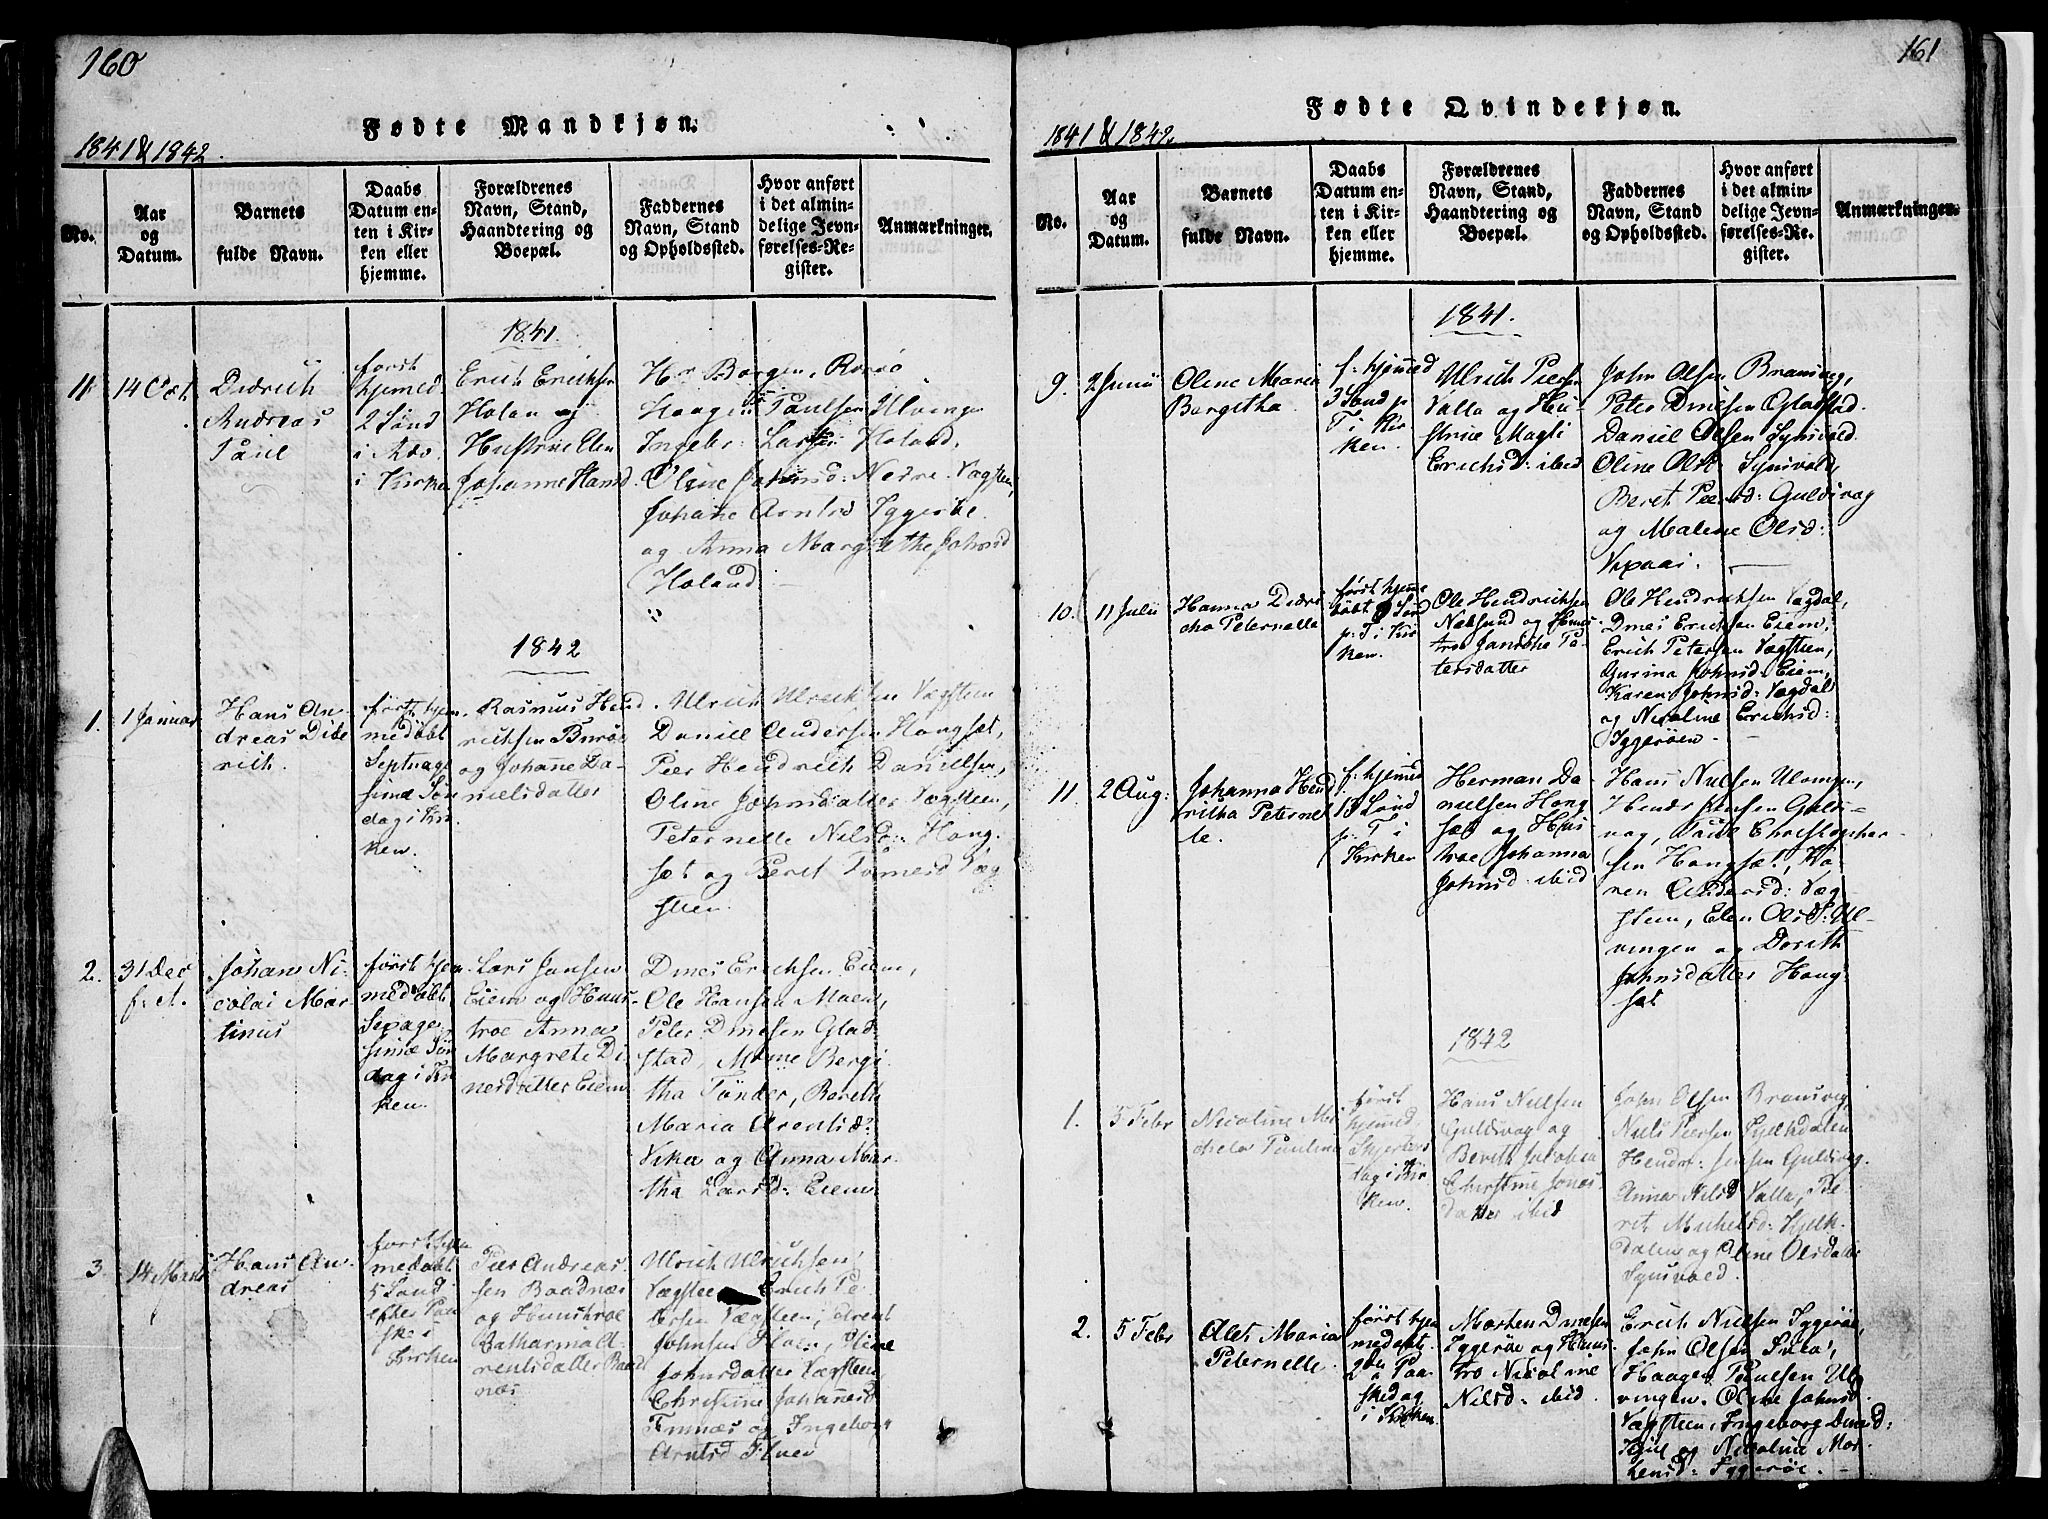 160
Fødte Mandkjøn.
1841 & 1842.
No.
Aar
og
Datum.
Barnets
fulde Navn.
Daabs
Datum en-
ten i Kir-
ken eller
hjemme.
Forældrenes
Navn, Stand,
Haandtering og
Boepæl.
Faddernes
Navn, Stand
og Opholdssted.
Hvor anført
i det almin-
delige Jevn-
førelses-Re-
gister.
Anmærkninger.
1841
11
14 Oct
Didrich
Andreas
Paul
først
hjemmed
2 Sønd
i Adv
i Kirken
Erich Erichsen
Holan og
Hustrue Elen
Johanne Hansd
Hr Borgen, Rorøe
Haagen Paulsen Ulvingen
Ingebr: Larsen Holand,
Oline Johnsd: Nedre Vægsteen,
Johane Arntsd Iggerøe
og Anna Margrethe Johnsd
Holand.
1842
1.
1 Januar
Hans An-
dreas Dide
rich.
først hjem
medøbt
Septuage
simæ Søn
dag i Kir-
ken.
Rasmus Hend
richsen Burøe
og Johanne Da-
nielsdatter
Ulrich Ulrichsen Vægsteen
Daniel Andersen Hongset,
Peer Hendrich Danielsen,
Oline Johnsdatter Vægsteen,
Peternelle Nilsd: Hong-
set og Beret Tomesd Væg
steen.
2.
31 Dec
f: A.
Johan Ni-
colai Mar
tinus
først hjem
medøbt
Sexage
simæ Søn
dag i Kir
ken.
Lars Jansen
Eiem og Huus-
troe Anna
Margrete Di
nesdatter Eiem
Dines Erichsen Eiem,
Ole Hansen Moen,
Peter Dinesen Glad-
stad, Maine Bergi
tha Tønder, Bereth
Maria Arentsd:
Viker og Anna Mar-
tha Larsd: Eiem.
3.
14 Marts
Hans An
dreas
først hjem
medøbt
5 Sønd
efter Paa
ske i
Kirken
Peer Andreas
sen Baadnæs
og Huustroe
Catharina A
rentsdatter Baad
næs
Ulrich Ulrichsen
Vægsteen Erich Pe
tersen Vægsteen, Arent
Johnsen Floen, Oline
Johnsdatter Vægsteen,
Christine Johannesd
Finnæs og Ingeborg
Arntsd Floen
161
Fødte Qvindekjøn.
1841 & 1842
No.
Aar
og
Datum.
Barnets
fulde Navn.
Daabs
Datum en-
ten i Kir-
ken eller
hjemme.
Forældrenes
Navn, Stand,
Haandtering og
Boepæl.
Faddernes
Navn, Stand
og Opholdssted.
Hvor anført
i det almin-
delige Jevn-
førelses-Re-
gister.
Anmærkninger.
1841.
9.
2 Junii
Oline Maria
Bergitha
f: hjemmed
3 Sønd p
T i Kir
ken.
Ulrich Peersen
Valla og Hu-
strue Magli
Erichsd: ibid
John Olsen Bransvig,
Peter Dinesen Gladstad.
Daniel Olsen Synsvold
Oline Olsd: Synsvold,
Beret Peersd: Guldsvag
og Malene Olsd:
Vixaas.
10.
11 Julii
Hanna Didri
cha Peternelle
først hjemme
døbt 8 Sønd
p: T i Kir
ken.
Ole Hendrichsen
Nilsund og Huus
troe Janicke Pe-
tersdatter
Ole Hendrichsen Vægdal,
Dines Erichsen Eiem,
Erich Petersen Vægsteen,
Gurina Johnsd: Eiem,
Karen Johnsd: Vægdal
og Nicoline Erichsd:
Iggerøen.
11.
2 Aug:
Johanna Hend
richa Peternel
le.
f: hjemmed
13 Sønd
p: T i
Kirken
Herman Da
nielsen Hong
set og Huus
troe Johanna
Johnsd: ibid
Hans Nilsen Ulvingen,
Hendr Jansen Guldsvag,
Paul Christopher-
sen Hongset, Ka-
ren Andersd: Væg-
steen, Elen Olsd: Ul-
vingen og Dorith
Johnsdatter Hong-
set
1842
1.
5 Febr
Nicoline Mi
chela Paulina
først
hjemmed,
Skjertors
dag i Kir
ken.
Hans Nilsen
Guldsvag og
Bereth Jacobea
Christine Jons-
datter ibid
John Olsen Bransvig,
Niels Peersen Hjelkdalen
Hendr: Jansen Guldsvag.
Anna Nilsd Valla, Be-
ret Michelsd: Hjelk-
dalen og Oline Olsdatter
Synsvold.
2.
5 Febr
Alet Maria
Peternelle.
først hjem
medøbt.
2den Paa-
skedag
i Kirken
Morten Dinesen
Iggerøe og Huus
tro Nicoline
Nilsd: ibid
Erich Nielsen Iggerøe,
John Olsen Sula,
Haagen Paulsen Ul-
vingen. Oline Johnsd
Vægsteen, Ingeborg Dinesd:
Kiil og Nicoline Mor-
tensd: Iggerøe.